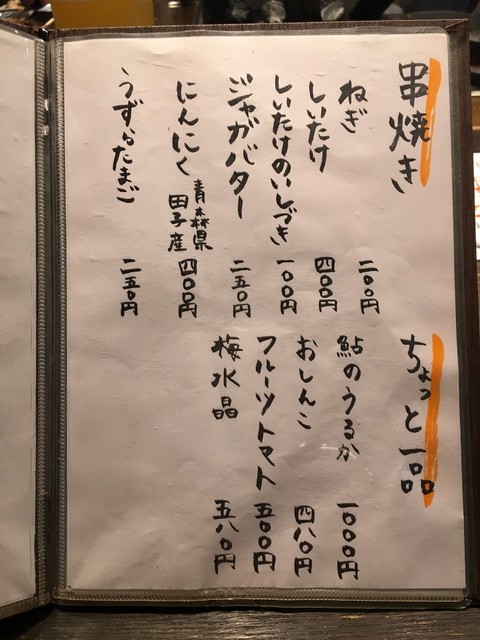 串焼き
ねぎ 二〇〇円
しいたけ 四〇〇円
しいたけのいしづき 一〇〇円
ジャガバター 二五〇円
にんにく 青森県田子産 四〇〇円
うずらたまご 二五〇円
ちょっと一品
鮎のうるか 一〇〇〇円
おしんこ 四八〇円
フルーツトマト 五〇〇円
梅水晶 五八〇円